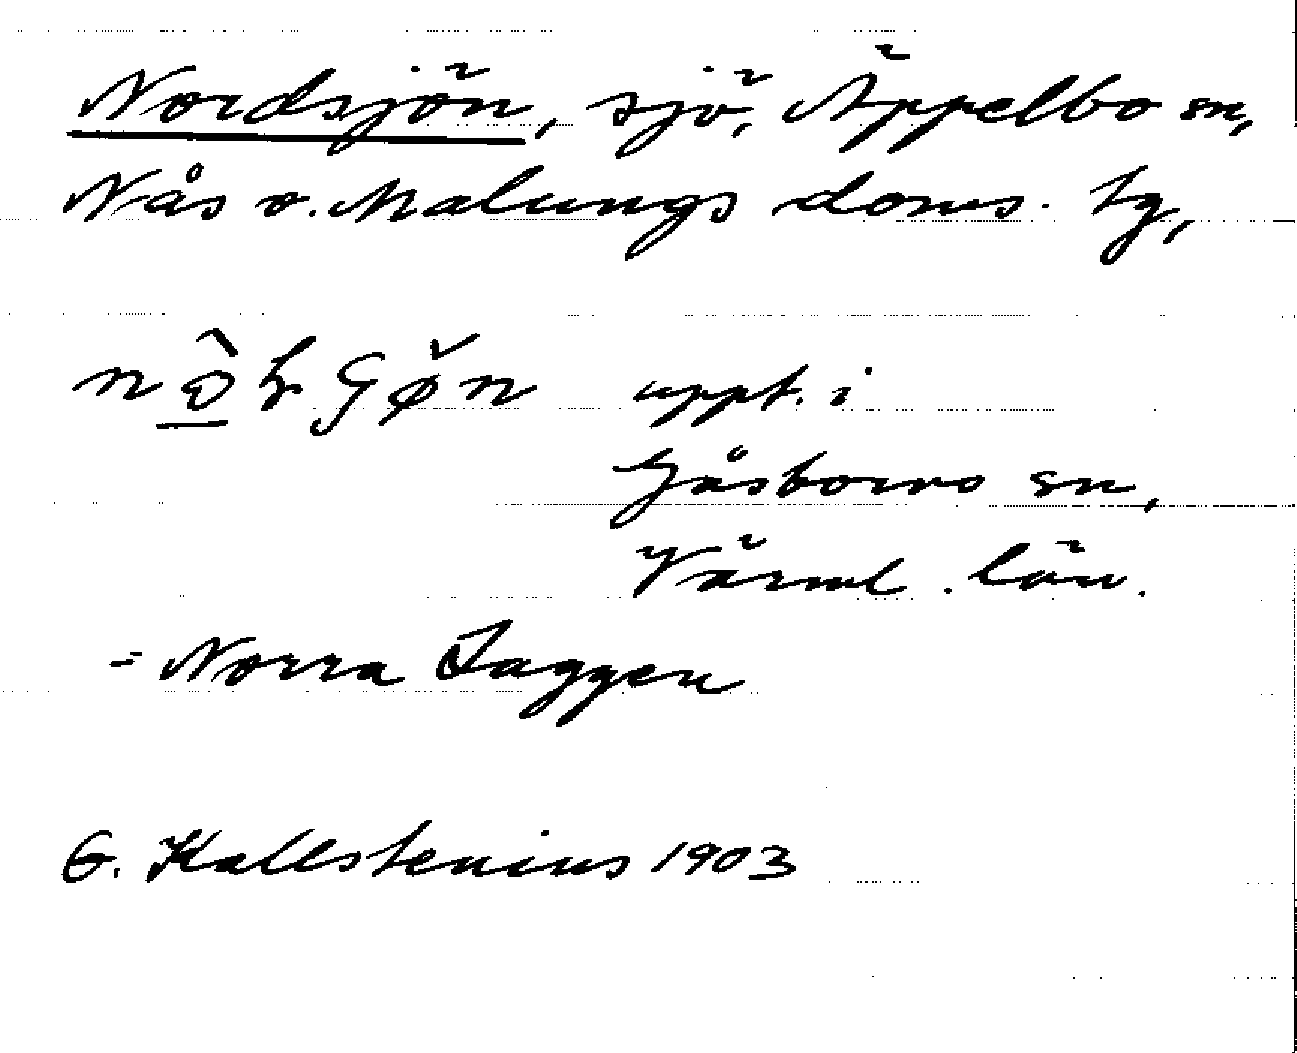 Nordsjön, sjö, Äppelbo sn,
Nås o. Malungs doms. tg,
uppt. i
Gåsborns sn,
Värml. län.
= Norra Taggen
G. Kallstenius 1903